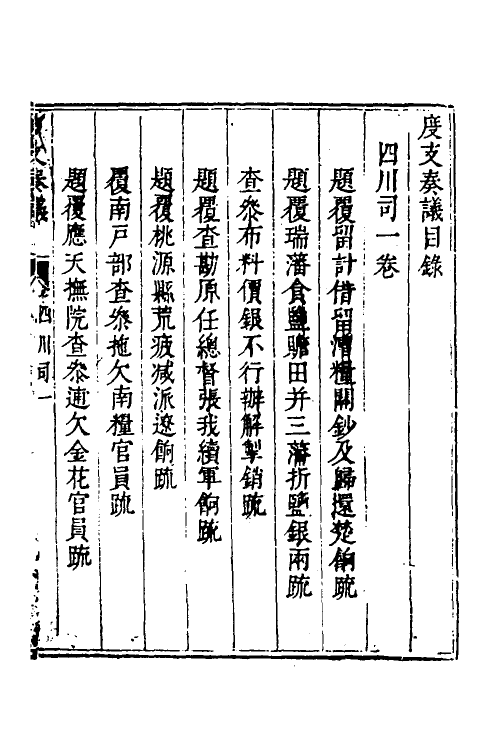 度支奏議目錄
四川司一卷
題覆留計借留漕糧關鈔及歸還楚餉疏
題覆瑞藩食鹽贍田并三藩折鹽銀兩疏
查叅布料價銀不行辦解掣銷疏
題覆查勘原任總督張我續軍餉疏
題覆桃源縣荒疲減派遼餉疏
覆南戶部查叅拖欠南糧官員疏
題覆應天撫院查叅逋欠金花官員疏
支奏議
四川司一